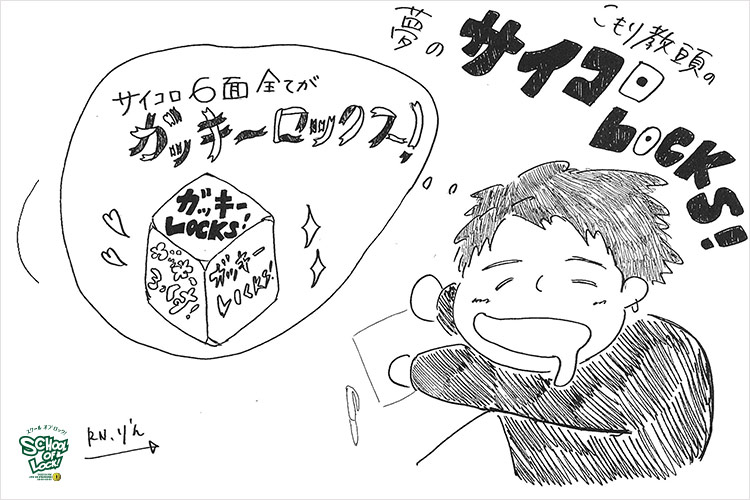 こもり教頭の
夢の
サイコロ
LOCKS!
サイコロ6面全てが
ガッキーロックス!
ガッキー
LOCKS!
ガッキー
LOCKS!
RN.りん
スクール オブ ロック!
SCHOOL
OF
LOCK!